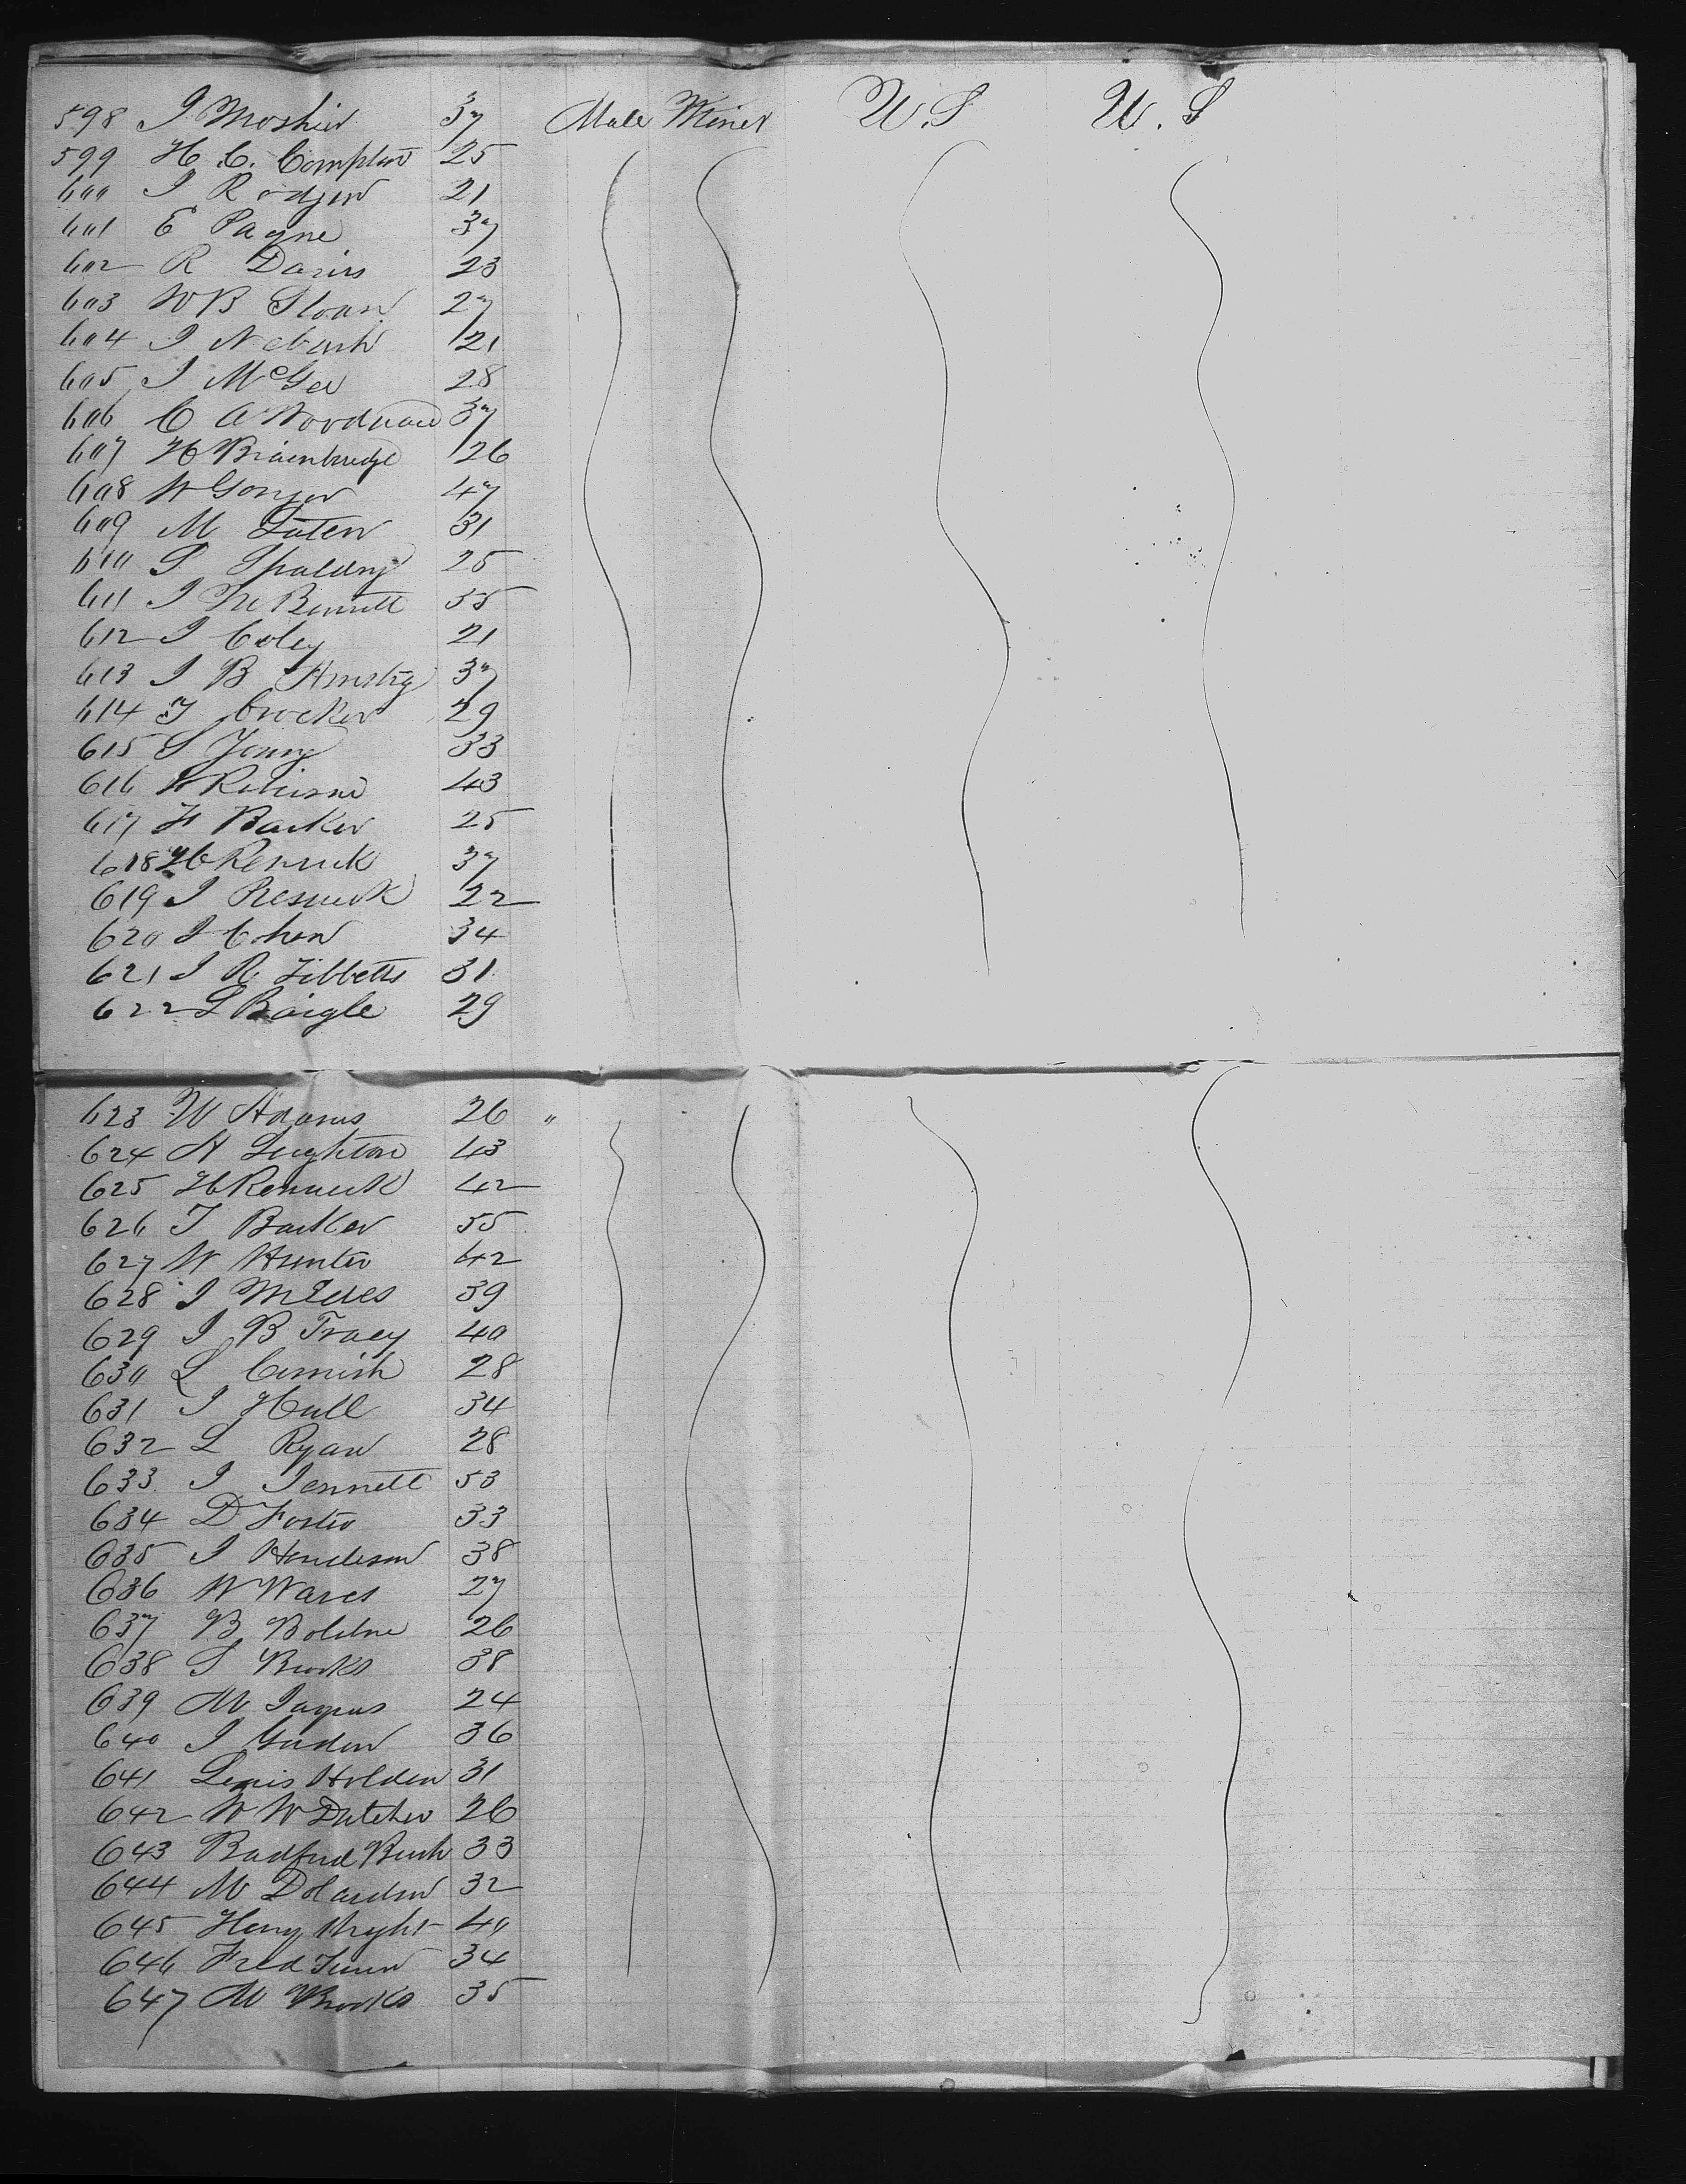 598 J Moshier 37 Male Miner U.S U.S
599 H C. Compton 25
600 J Rodgers 21
601 E Payne 37
602 R Davis 23
603 W B Sloan 27
604 J N 21
605 J McGee 28
606 C A Woodward 37
607 H Brainbridge 26
608 W 47
609 M 31
610 S Spalding 25
611 J M Bennett 35
612 J Coley 21
613 J B 37
614 T Crocker 29
615 S Young 33
616 W 43
617 H Barker 25
618 H Renwick 37
619 J Reswick 22
620 J Cohen 34
621 J R Tibbetts 31
622 L Baigle 29
623 W Adams 26 "
624 A Leighton 43
625 H Renwick 42
626 T Barker 55
627 W Hunter 42
628 J 39
629 J B Tracy 40
630 L Cornish 28
631 J Hull 34
632 L Ryan 28
633 J Jennett 53
634 D Foster 33
635 J Henderson 38
636 W 27
637 B 26
638 S Brooks 38
639 M 24
640 J 36
641 Lewis Holden 31
642 W W Dutcher 26
643 Bradford Bush 33
644 M 32
645 Henry Wright 40
646 Fred 34
647 M Brooks 35